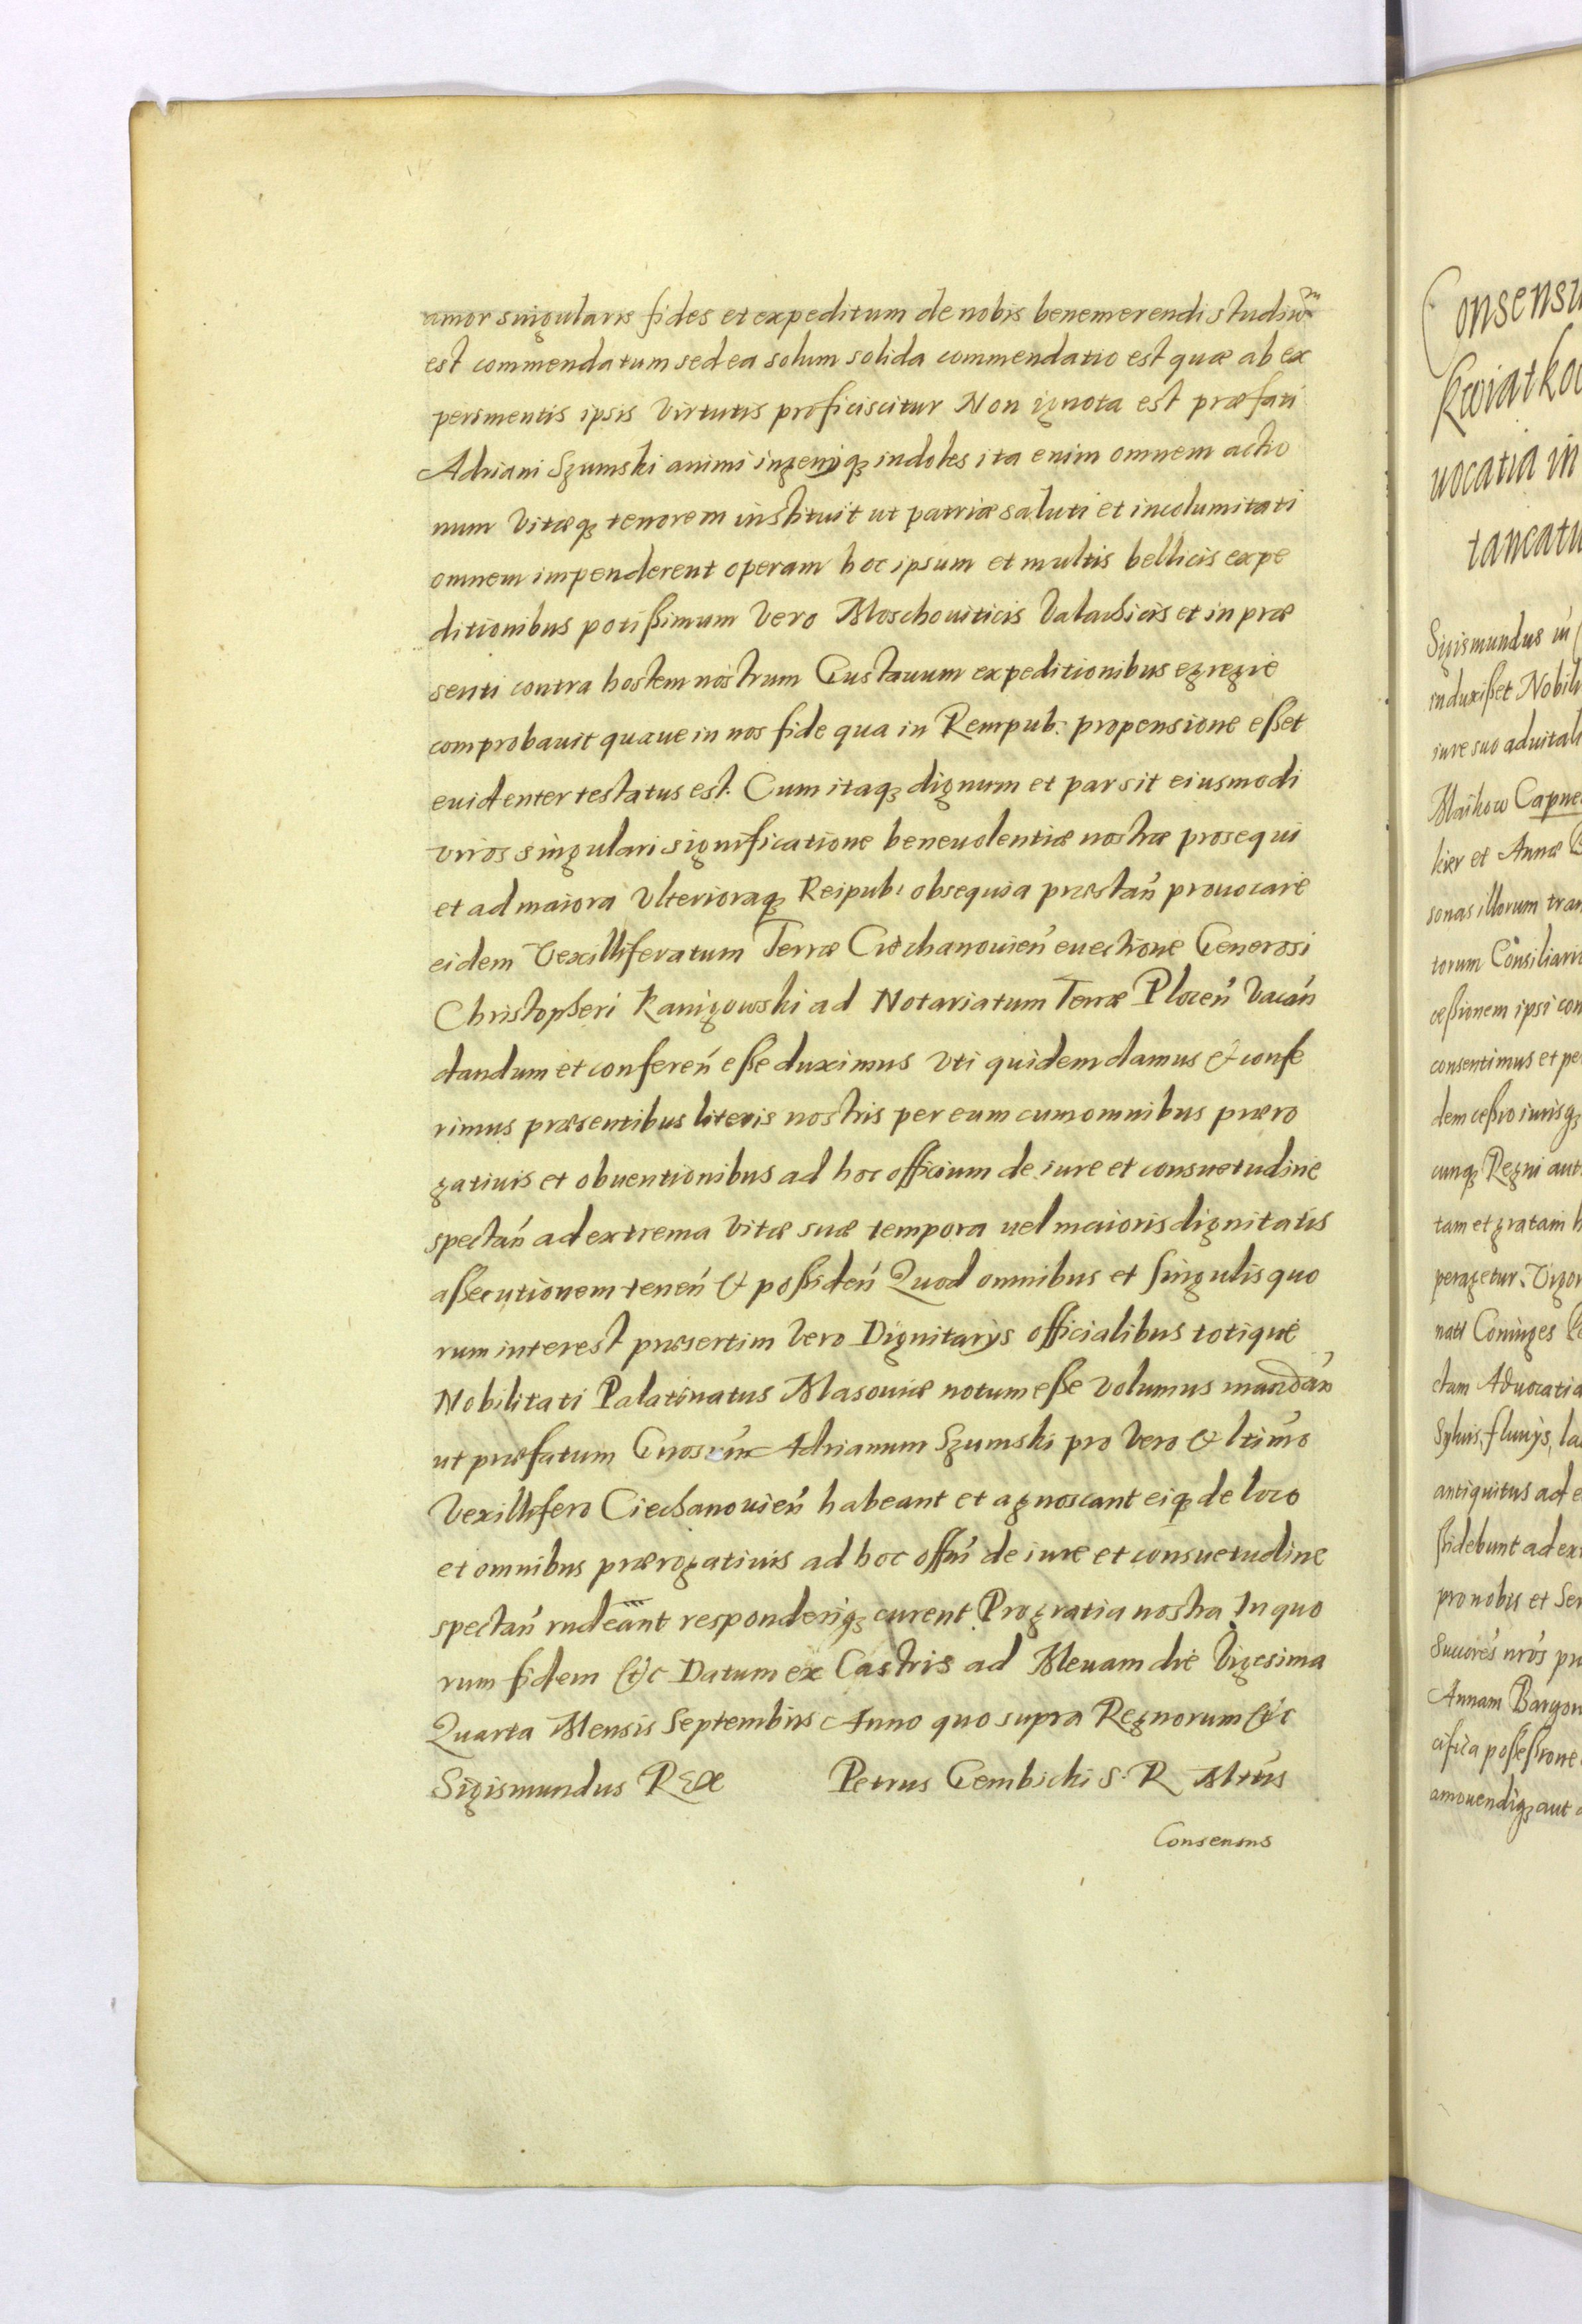 amor singularis fides et expeditum de nobis benemerendi studium
est commendatum sed ea solum solida commendatio est quæ ab ex
perimentis ipsis Virtutis proficiscitur Non ignota est præfati
Adriani Szumski animi ingenijq₃ indoles ita enim omnem actio
num Vitæq₃ tenorem instituit ut patriæ saluti et incolumitati
omnem impenderent operam hoc ipsum et multis bellicis expe
ditionibus potißimum Vero Moschouiticis Valachicis et in præ
senti contra hostem nostrum Gustauum expeditionibus egregie
comprobauit quaue in nos fide qua in Rempub: propensione eßet
euidenter testatus est. Cum itaq₃ dignum et par sit eiusmodi
viros singulari significatione beneuolentiæ nostræ prosequi
et ad maiora Vlterioraq₃ Reipub: obsequia præstań prouocare
eidem Vexilliferatum Terræ Ciechanouień euectione Generosi
Christopheri Kanigowski ad Notariatum Terræ Płoceń Vacań
dandum et confereń eße duximus Vti quidem damus & confe
rimus præsentibus literis nostris per eum cum omnibus præro
gatiuis et obuentionibus ad hoc officium de iure et consuetudine
spectań ad extrema Vitæ suæ tempora uel maioris dignitatis
aßecutionem teneń & poßideń Quod omnibus et singulis quo
rum interest præsertim Vero Dignitarijs officialibus totique
Nobilitati Palatinatus Masouiæ notum eße Volumus mandań
ut præfatum Adrianum Szumski pro Vero & ltimo
Vexillifero Ciechanouień habeant et agnoscant eiq₃ de loco
et omnibus prærogatiuis ad hoc offm de iure et consuetudine
spectań rndeant responderiq₃ curent. Pro gratia nostra In quo
rum fidem &c Datum ex Castris ad Meuam die Vigesima
Quarta Mensis Septembris Anno quo supra Regnorum &c
Sigismundus REX Petrus Gembicki S. R. Mtis
Consensus
Consensu
uocatia in
Sigismundus
induxißet Nobil
iure suo aduitali
et Annæ
sonas illorum tran
torum Consiliario
ceßionem ipsi con
consentimus et pe
dem ceßio iurisq₃
cunq₃ Regni aut
tam et gratam h
peragetur. Vigor
nati Coniuges
ctam Aduocatia
Syluis, fluuijs, la
antiquitus ad e
ßidebunt ad ex
pro nobis et Ser
Succores nros pr
Annam
cifica poßeßione
amouendiq₃ aut